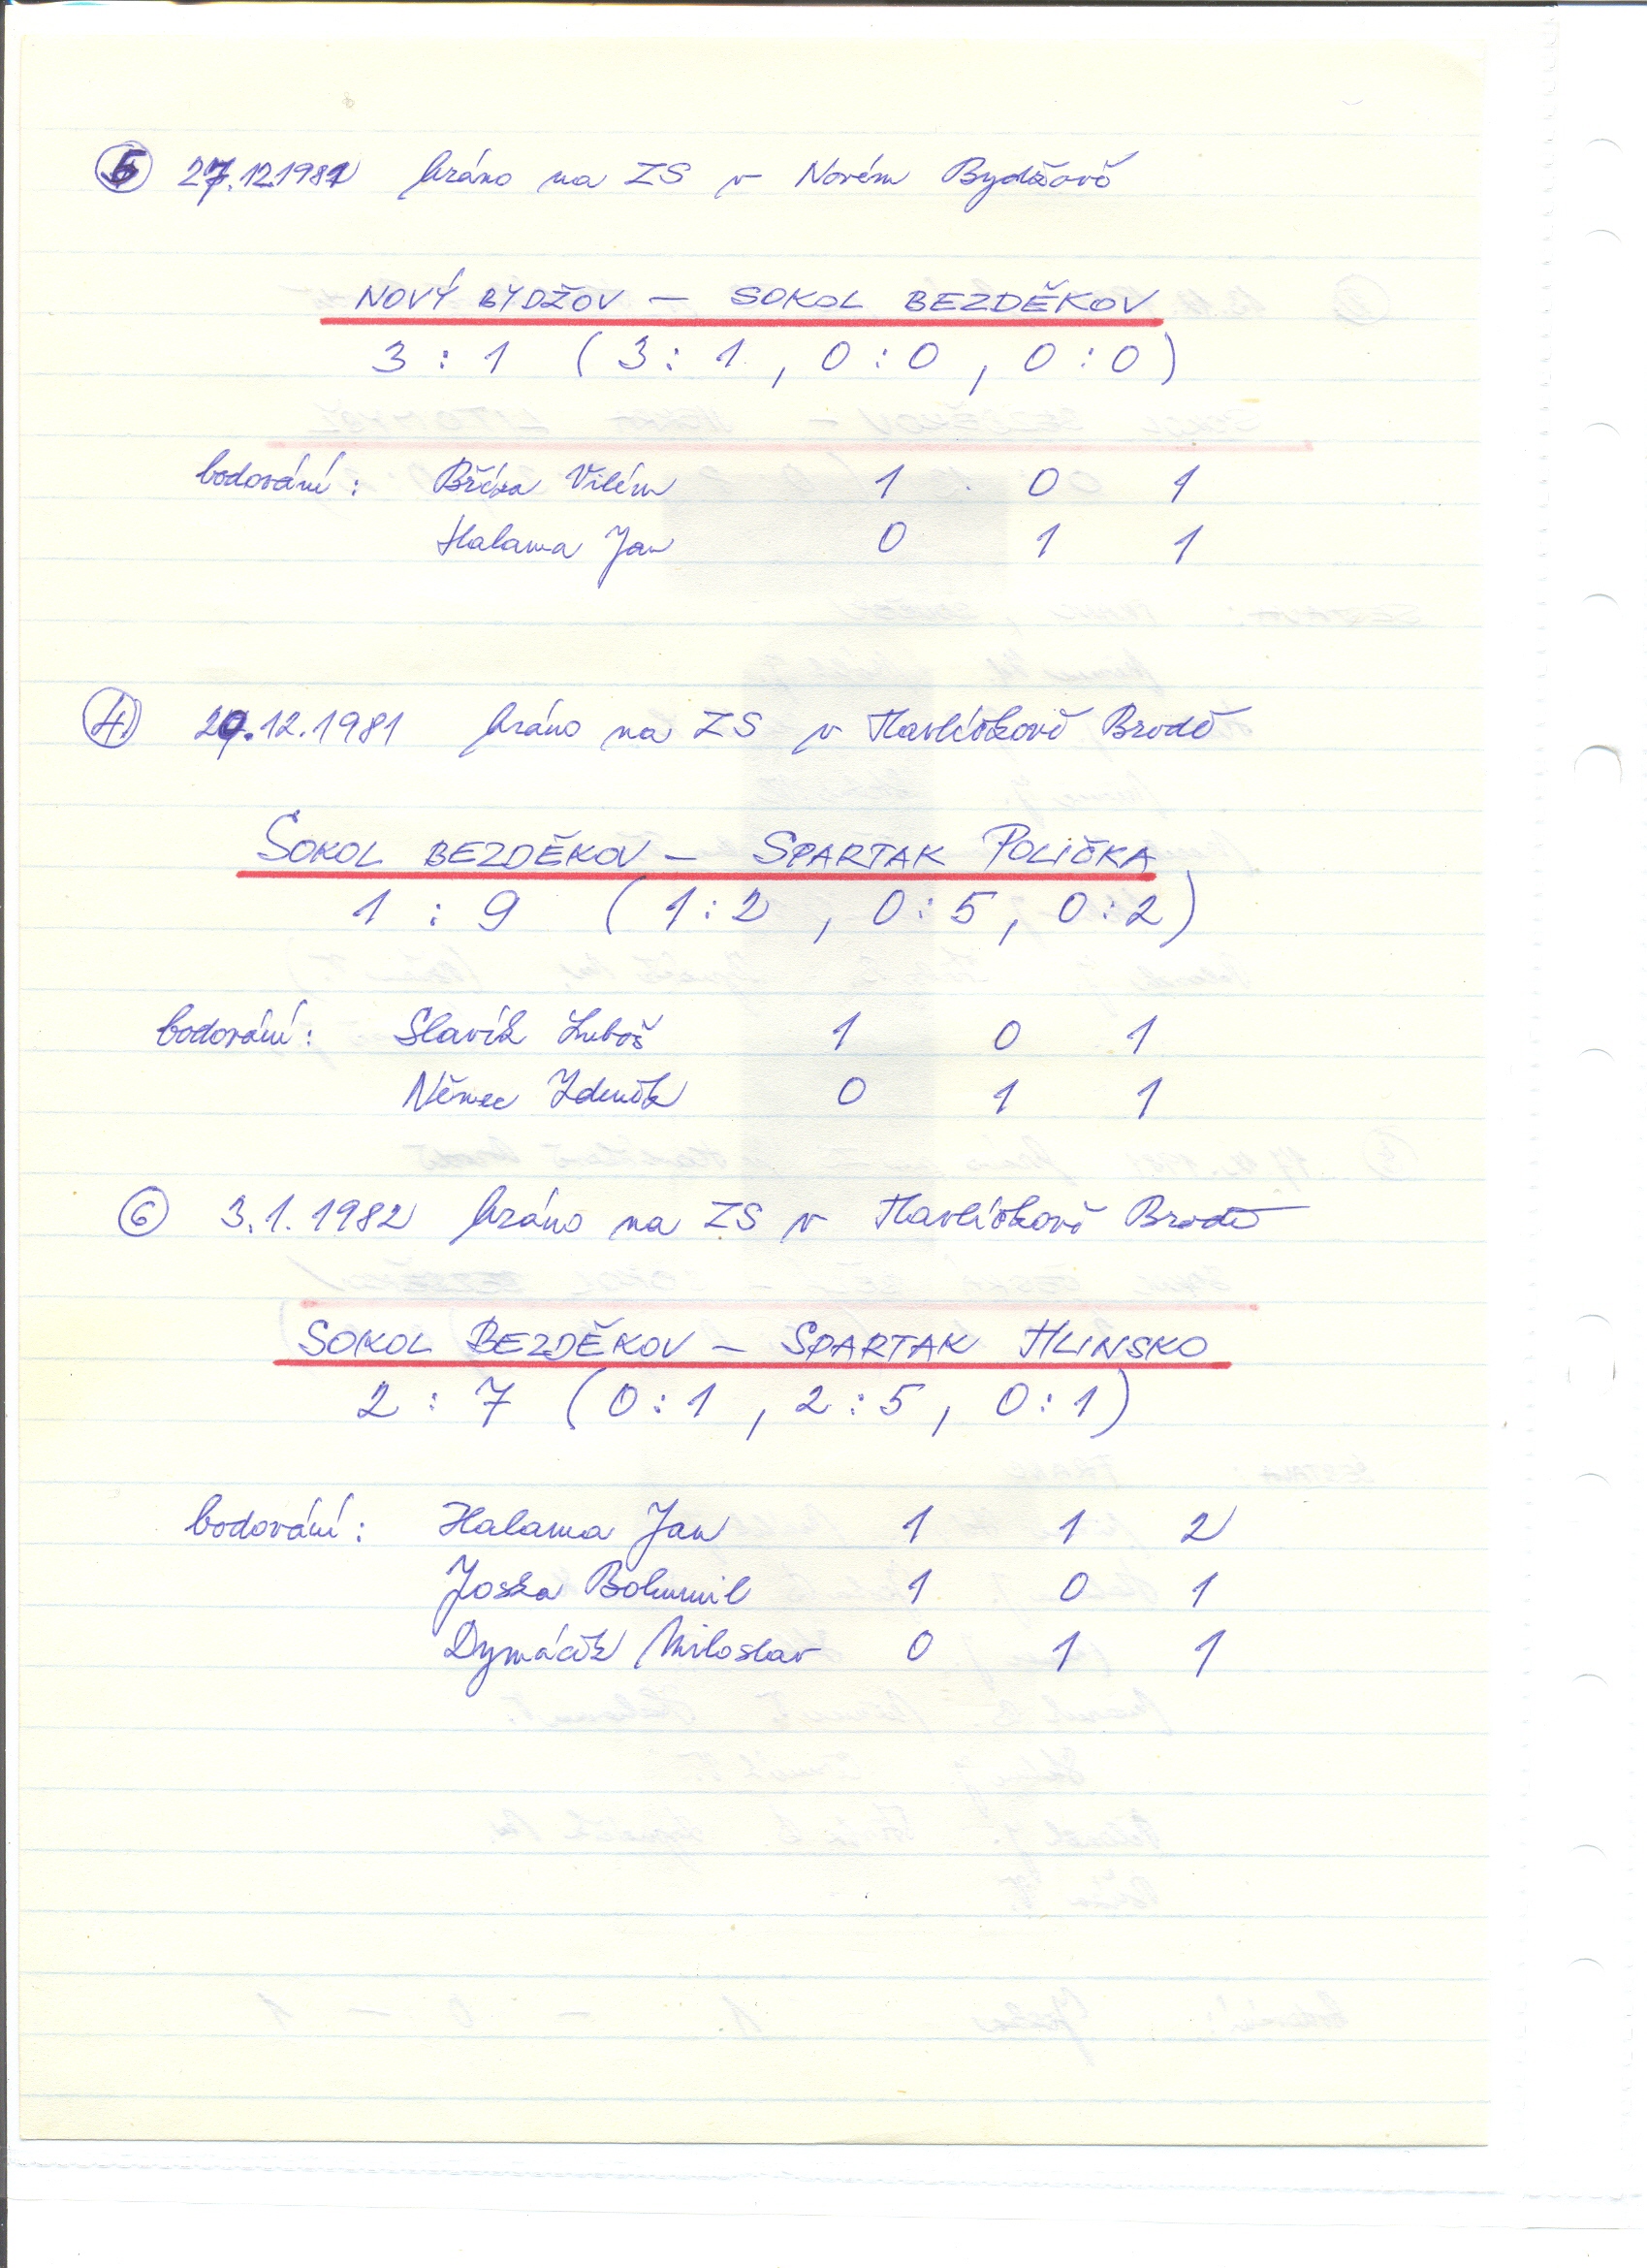 5 27.12.1981 hráno na ZS v Novém Bydžově
NOVÝ BYDŽOV – SOKOL BEZDĚKOV
3 : 1 ( 3 : 1 , 0 : 0 , 0 : 0 )
bodování : Bříza Vilém 1 0 1
Halama Jan 0 1 1
4 20.12.1981 hráno na ZS v Havlíčkově Brodě
SOKOL BEZDĚKOV – SPARTAK POLIČKA
1 : 9 ( 1 : 2 , 0 : 5 , 0 : 2 )
bodování : Slavík Luboš 1 0 1
Němec Zdeněk 0 1 1
6 3.1.1982 hráno na ZS v Havlíčkově Brodě
SOKOL BEZDĚKOV – SPARTAK HLINSKO
2 : 7 ( 0 : 1 , 2 : 5 , 0 : 1 )
bodování : Halama Jan 1 1 2
Joska Bohumil 1 0 1
Dymáček Miloslav 0 1 1